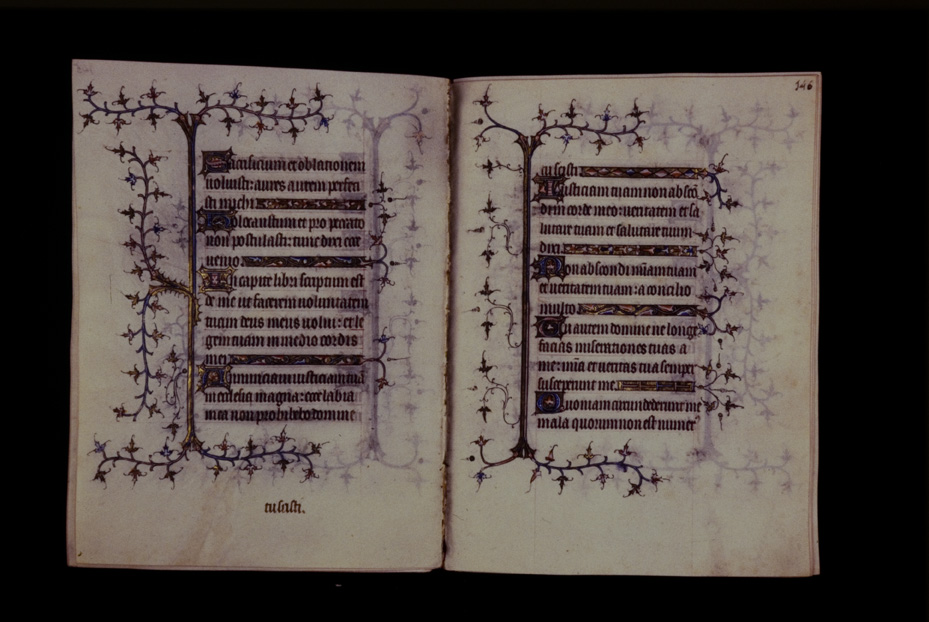 Sacrificium et oblationem
noluisti: aures autem perfeci
sti michi
Holocaustum et pro peccato
non postulasti: tunc dixi ecce
uenio
In capite libri scriptum est
de me ut facerem uoluntatem
tuam deus meus uolui: et le
gem tuam in medio cordis
mei
Annunciaui iusticiam tuā
in ecclesia magna: ecce labia
mea non prohibebo domine
tu scisti.
146
tu scisti
Iusticiam tuam non abscō
di in corde meo: ueritatem et sa
lutare tuum et salutare tuum
dixi
Non abscondi miām tuam
et ueritatem tuam: a concilio
multo
Tu autem domine ne longe
facias miserationes tuas a
me: miā et ueritas tua semper
susceperunt me
Quoniam circundederunt me
mala quorum non est numer